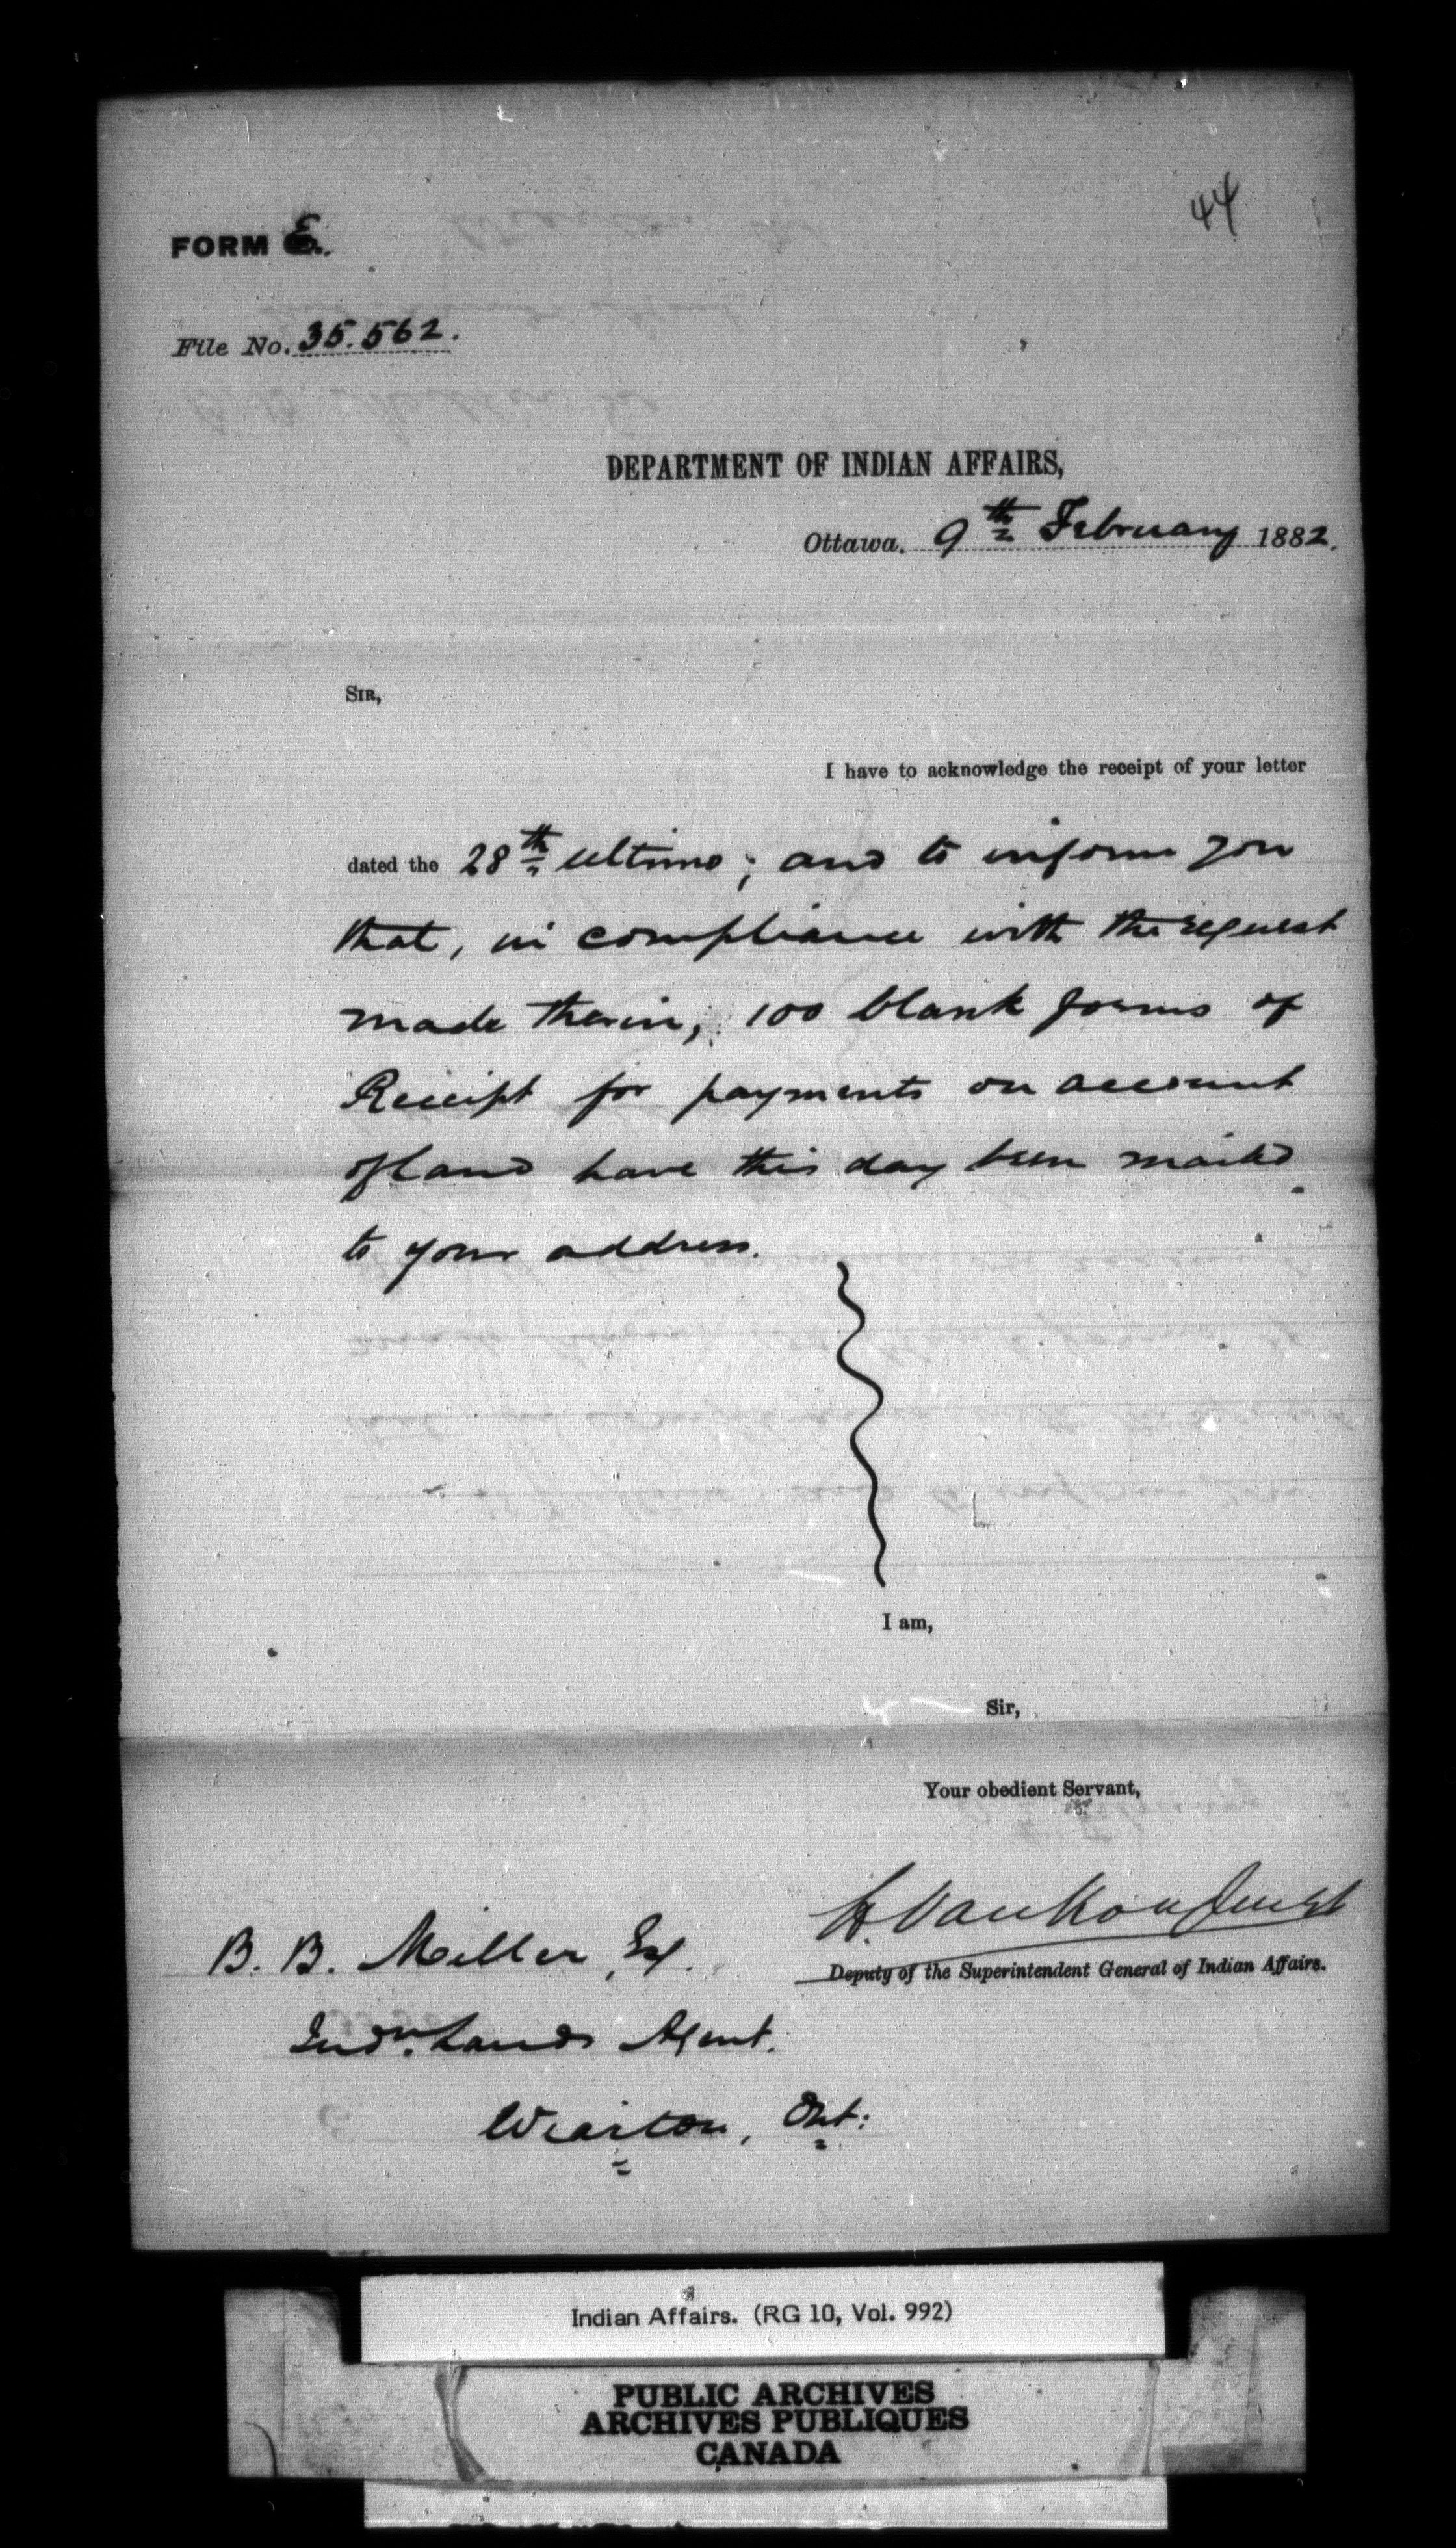 44
FORM E.
File No. 35.562.
DEPARTMENT OF INDIAN AFFAIRS,
Ottawa. 9th February 1882.
SIR,
I have to acknowledge the receipt of your letter
dated the 28th ultimo; and to inform you
that, in compliance with the request
made therein, 100 blank forms of
Receipt for payments on account
of land have this day been mailed
to your address.
I am,
Sir,
Your obedient Servant,
L. VanKoughnet
Deputy of the Superintendent General of Indian Affairs.
B. B. Miller, Esq.
Indn. Lands Agent.
Wiarton, Ont:
Indian Affairs. (RG 10, Vol. 992)
PUBLIC ARCHIVES
ARCHIVES PUBLIQUES
CANADA